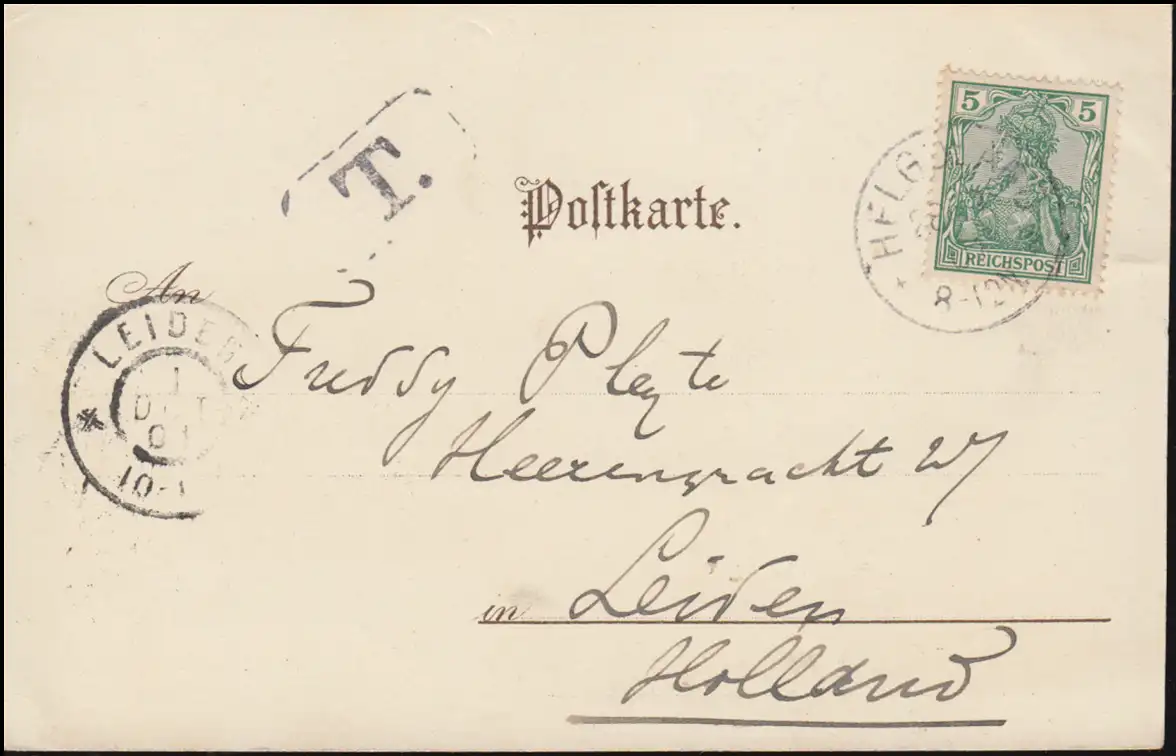 5 5
REICHSPOST
HELGOLAND
8-12N
T.
Postkarte.
An
LEIDEN
1
OCT
01
10-1
Freddy Pleyte
Heerengracht 27
in Leiden
Holland